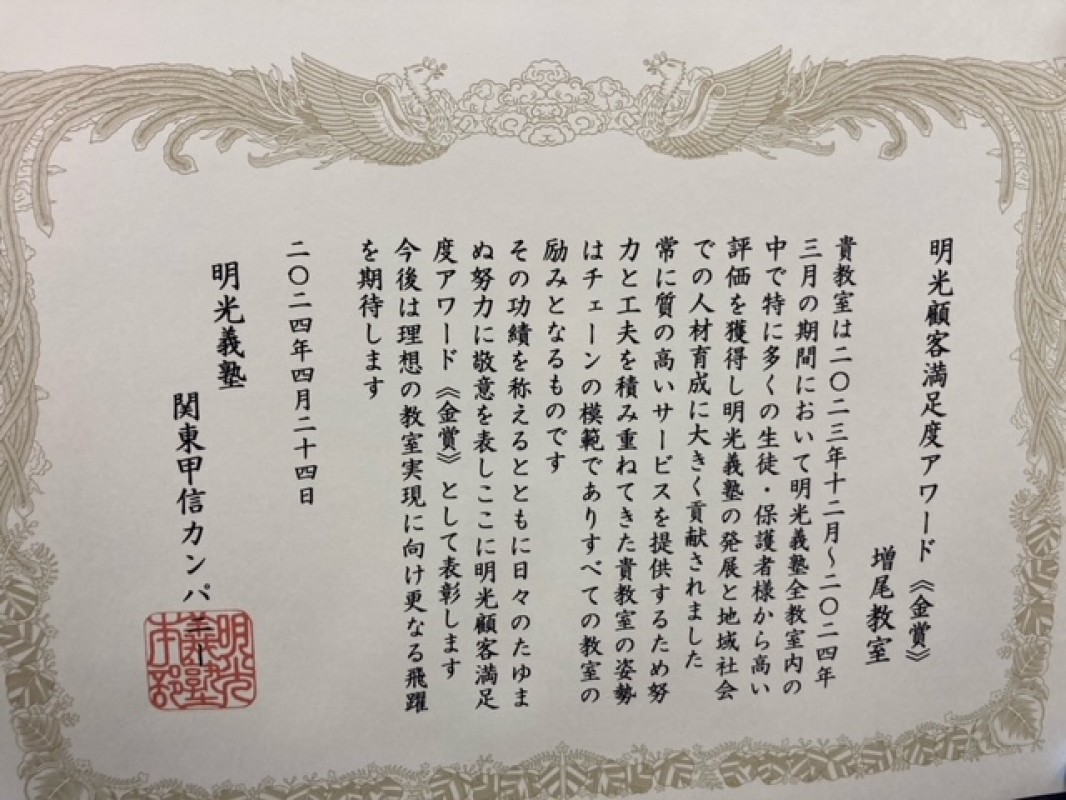 明光顧客満足度アワード《金賞》
増尾教室
貴教室は二〇二三年十二月～二〇二四年
三月の期間において明光義塾全教室内の
中で特に多くの生徒・保護者様から高い
評価を獲得し明光義塾の発展と地域社会
での人材育成に大きく貢献されました
常に質の高いサービスを提供するため努
力と工夫を積み重ねてきた貴教室の姿勢
はチェーンの模範でありすべての教室の
励みとなるものです
その功績を称えるとともに日々のたゆま
ぬ努力に敬意を表しここに明光顧客満足
度アワード《金賞》として表彰します
今後は理想の教室実現に向け更なる飛躍
を期待します
二〇二四年四月二十四日
明光義塾
関東甲信カンパニー
明光
義塾
本部